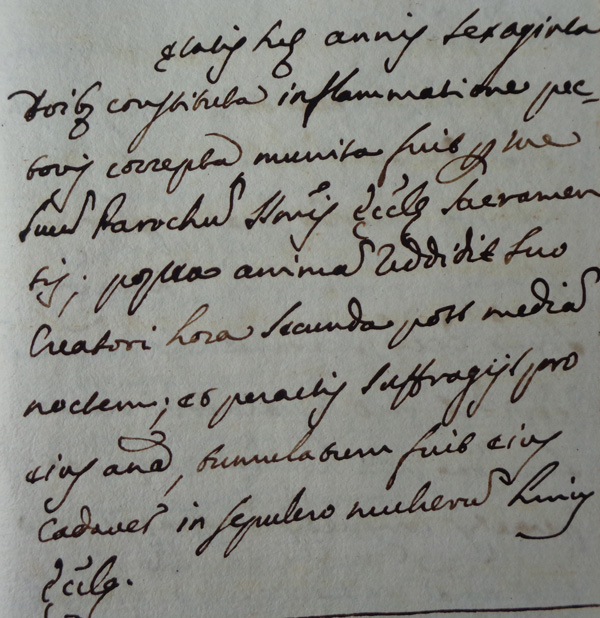 ętatis suę annis sexaginta
tribq constituta inflammatione pec-
toris correpta munita fuit p me
suũ Parochũ SSmis Ecclę Sacramen
tis; postea animã reddidit suo
Creatori hora secunda post mediã
noctem; et peractis suffragijs pro
eius anã, tumulatum fuit eius
Cadaver in sepulcro mulierũ huius
Ecclę.